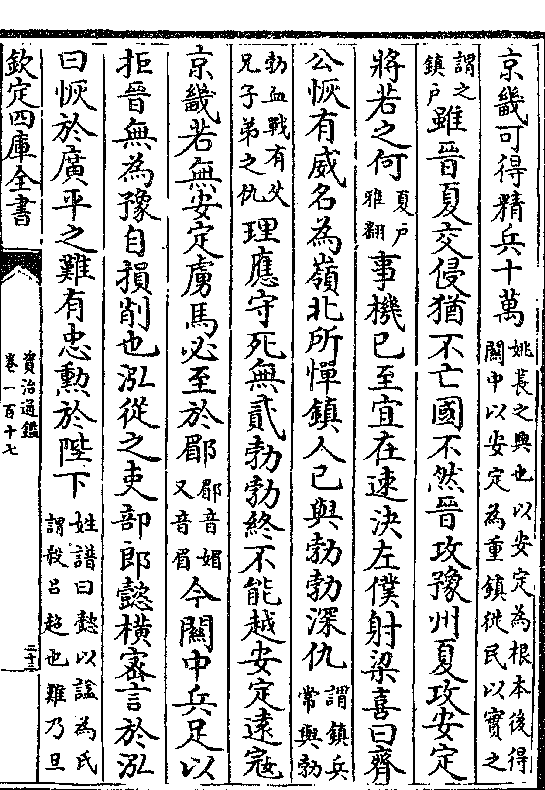 京畿可得精兵十萬姚萇之興也以安定為根本後得關中以安定為重鎮徙民以實之
謂之鎮户雖晉夏交侵猶不亡國不然晉攻豫州夏攻安定
將若之何夏户雅翻事機已至宜在速決左僕射梁喜曰齊
公恢有威名為嶺北所憚鎮人已與勃勃深仇謂鎮兵常與勃
勃血戰有父兄子弟之仇理應守死無貳勃勃終不能越安定遠寇
京畿若無安定虜馬必至於郿郿音媚又音眉今關中兵足以
拒晉無為豫自損削也泓從之吏部郎懿橫密言於泓
曰恢於廣平之難有忠勲於陛下姓譜曰懿以諡為氏謂殺吕超也難乃旦
欽定四庫全書
資治通鑑
卷一百十七
二十三